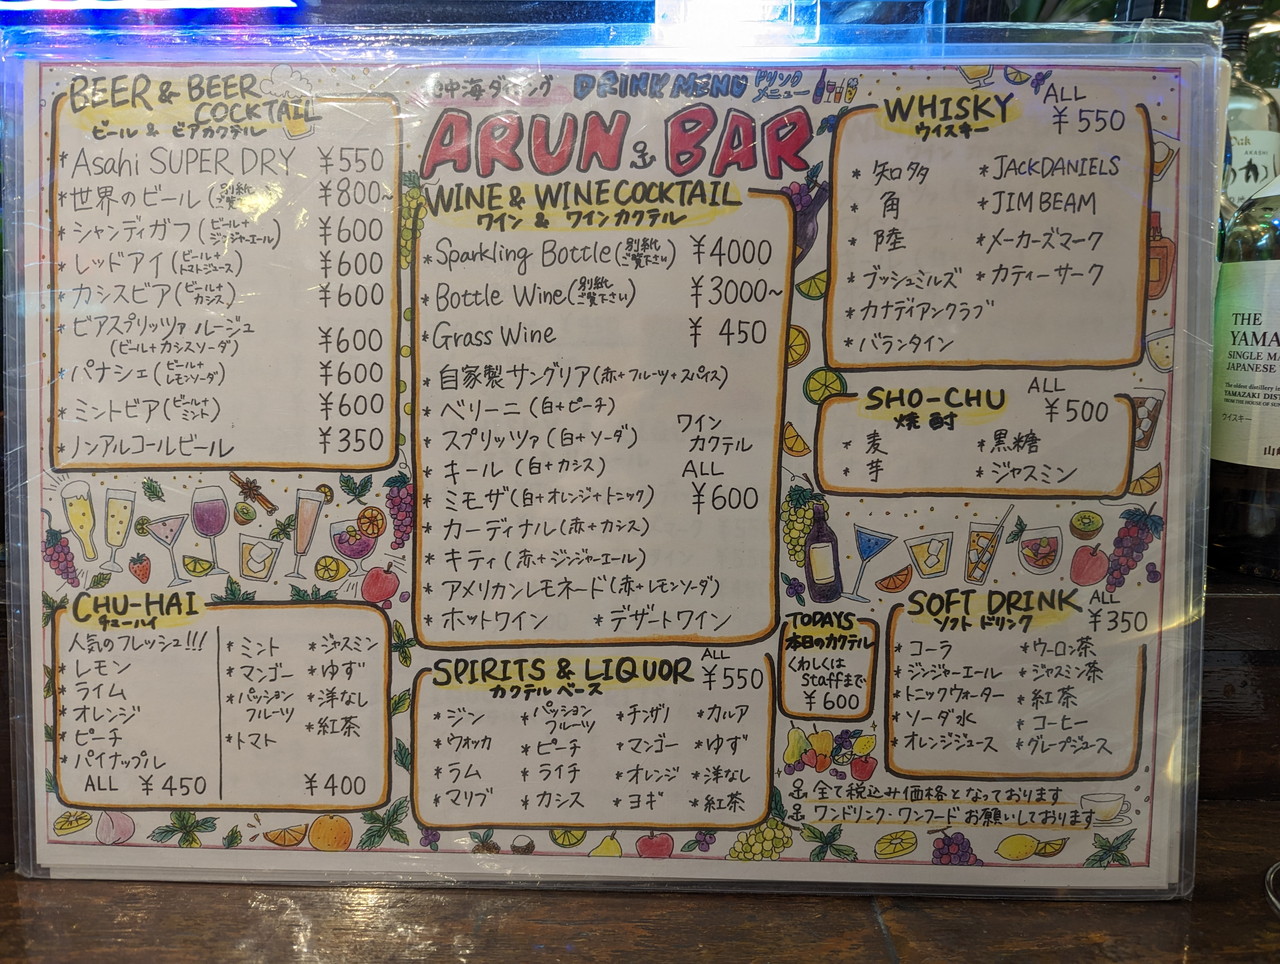 中海ダイニング DRINK MENU ドリンク メニュー
ARUN BAR
BEER & BEER COCKTAIL
ビール & ビアカクテル
* Asahi SUPER DRY ¥550
* 世界のビール (別紙ご覧下さい) ¥800~
* シャンディガフ (ビール+ジンジャーエール) ¥600
* レッドアイ (ビール+トマトジュース) ¥600
* カシスビア (ビール+カシス) ¥600
* ビアスプリッツァ ルージュ
(ビール+カシスソーダ) ¥600
* パナシェ (ビール+レモンソーダ) ¥600
* ミントビア (ビール+ミント) ¥600
* ノンアルコールビール ¥350
CHU-HAI
チューハイ
人気のフレッシュ!!!
* レモン
* ライム
* オレンジ
* ピーチ
* パイナップル
ALL ¥450
* ミント * ジャスミン
* マンゴー * ゆず
* パッションフルーツ * 洋なし
* トマト * 紅茶
¥400
WINE & WINE COCKTAIL
ワイン & ワインカクテル
* Sparkling Bottle (別紙ご覧下さい) ¥4000
* Bottle Wine (別紙ご覧下さい) ¥3000~
* Grass Wine ¥450
* 自家製サングリア (赤+フルーツ+スパイス)
* ベリーニ (白+ピーチ)
* スプリッツァ (白+ソーダ)
* キール (白+カシス)
* ミモザ (白+オレンジ+トニック)
* カーディナル (赤+カシス)
* キティ (赤+ジンジャーエール)
* アメリカンレモネード (赤+レモンソーダ)
* ホットワイン * デザートワイン
ワイン
カクテル
ALL
¥600
SPIRITS & LIQUOR ALL ¥550
カクテル ベース
* ジン * パッションフルーツ * チンザノ * カルア
* ウォッカ * ピーチ * マンゴー * ゆず
* ラム * ライチ * オレンジ * 洋なし
* マリブ * カシス * ヨギ * 紅茶
WHISKY ALL ¥550
ウイスキー
* 知多 * JACKDANIELS
* 角 * JIM BEAM
* 陸 * メーカーズマーク
* ブッシュミルズ * カティーサーク
* カナディアンクラブ
* バランタイン
SHO-CHU ALL ¥500
焼酎
* 麦 * 黒糖
* 芋 * ジャスミン
TODAYS
本日のカクテル
くわしくは
Staffまで
¥600
SOFT DRINK ALL ¥350
ソフト ドリンク
* コーラ * ウーロン茶
* ジンジャーエール * ジャスミン茶
* トニックウォーター * 紅茶
* ソーダ水 * コーヒー
* オレンジジュース * グレープジュース
全て税込み価格となっております
ワンドリンク・ワンフードお願いしております
Oak
AKASHI
THE
YAMA
SINGLE MA
JAPANESE
The oldest distillery in
YAMAZAKI DIST
FROM THE HOUSE OF SUN
ウイスキー
山